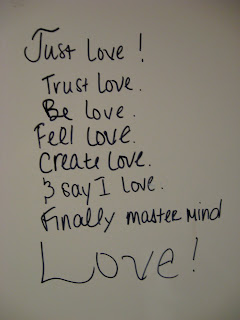 Just love!
Trust love.
Be love.
Fell love.
Create love.
& say I love.
Finally master mind
Love!